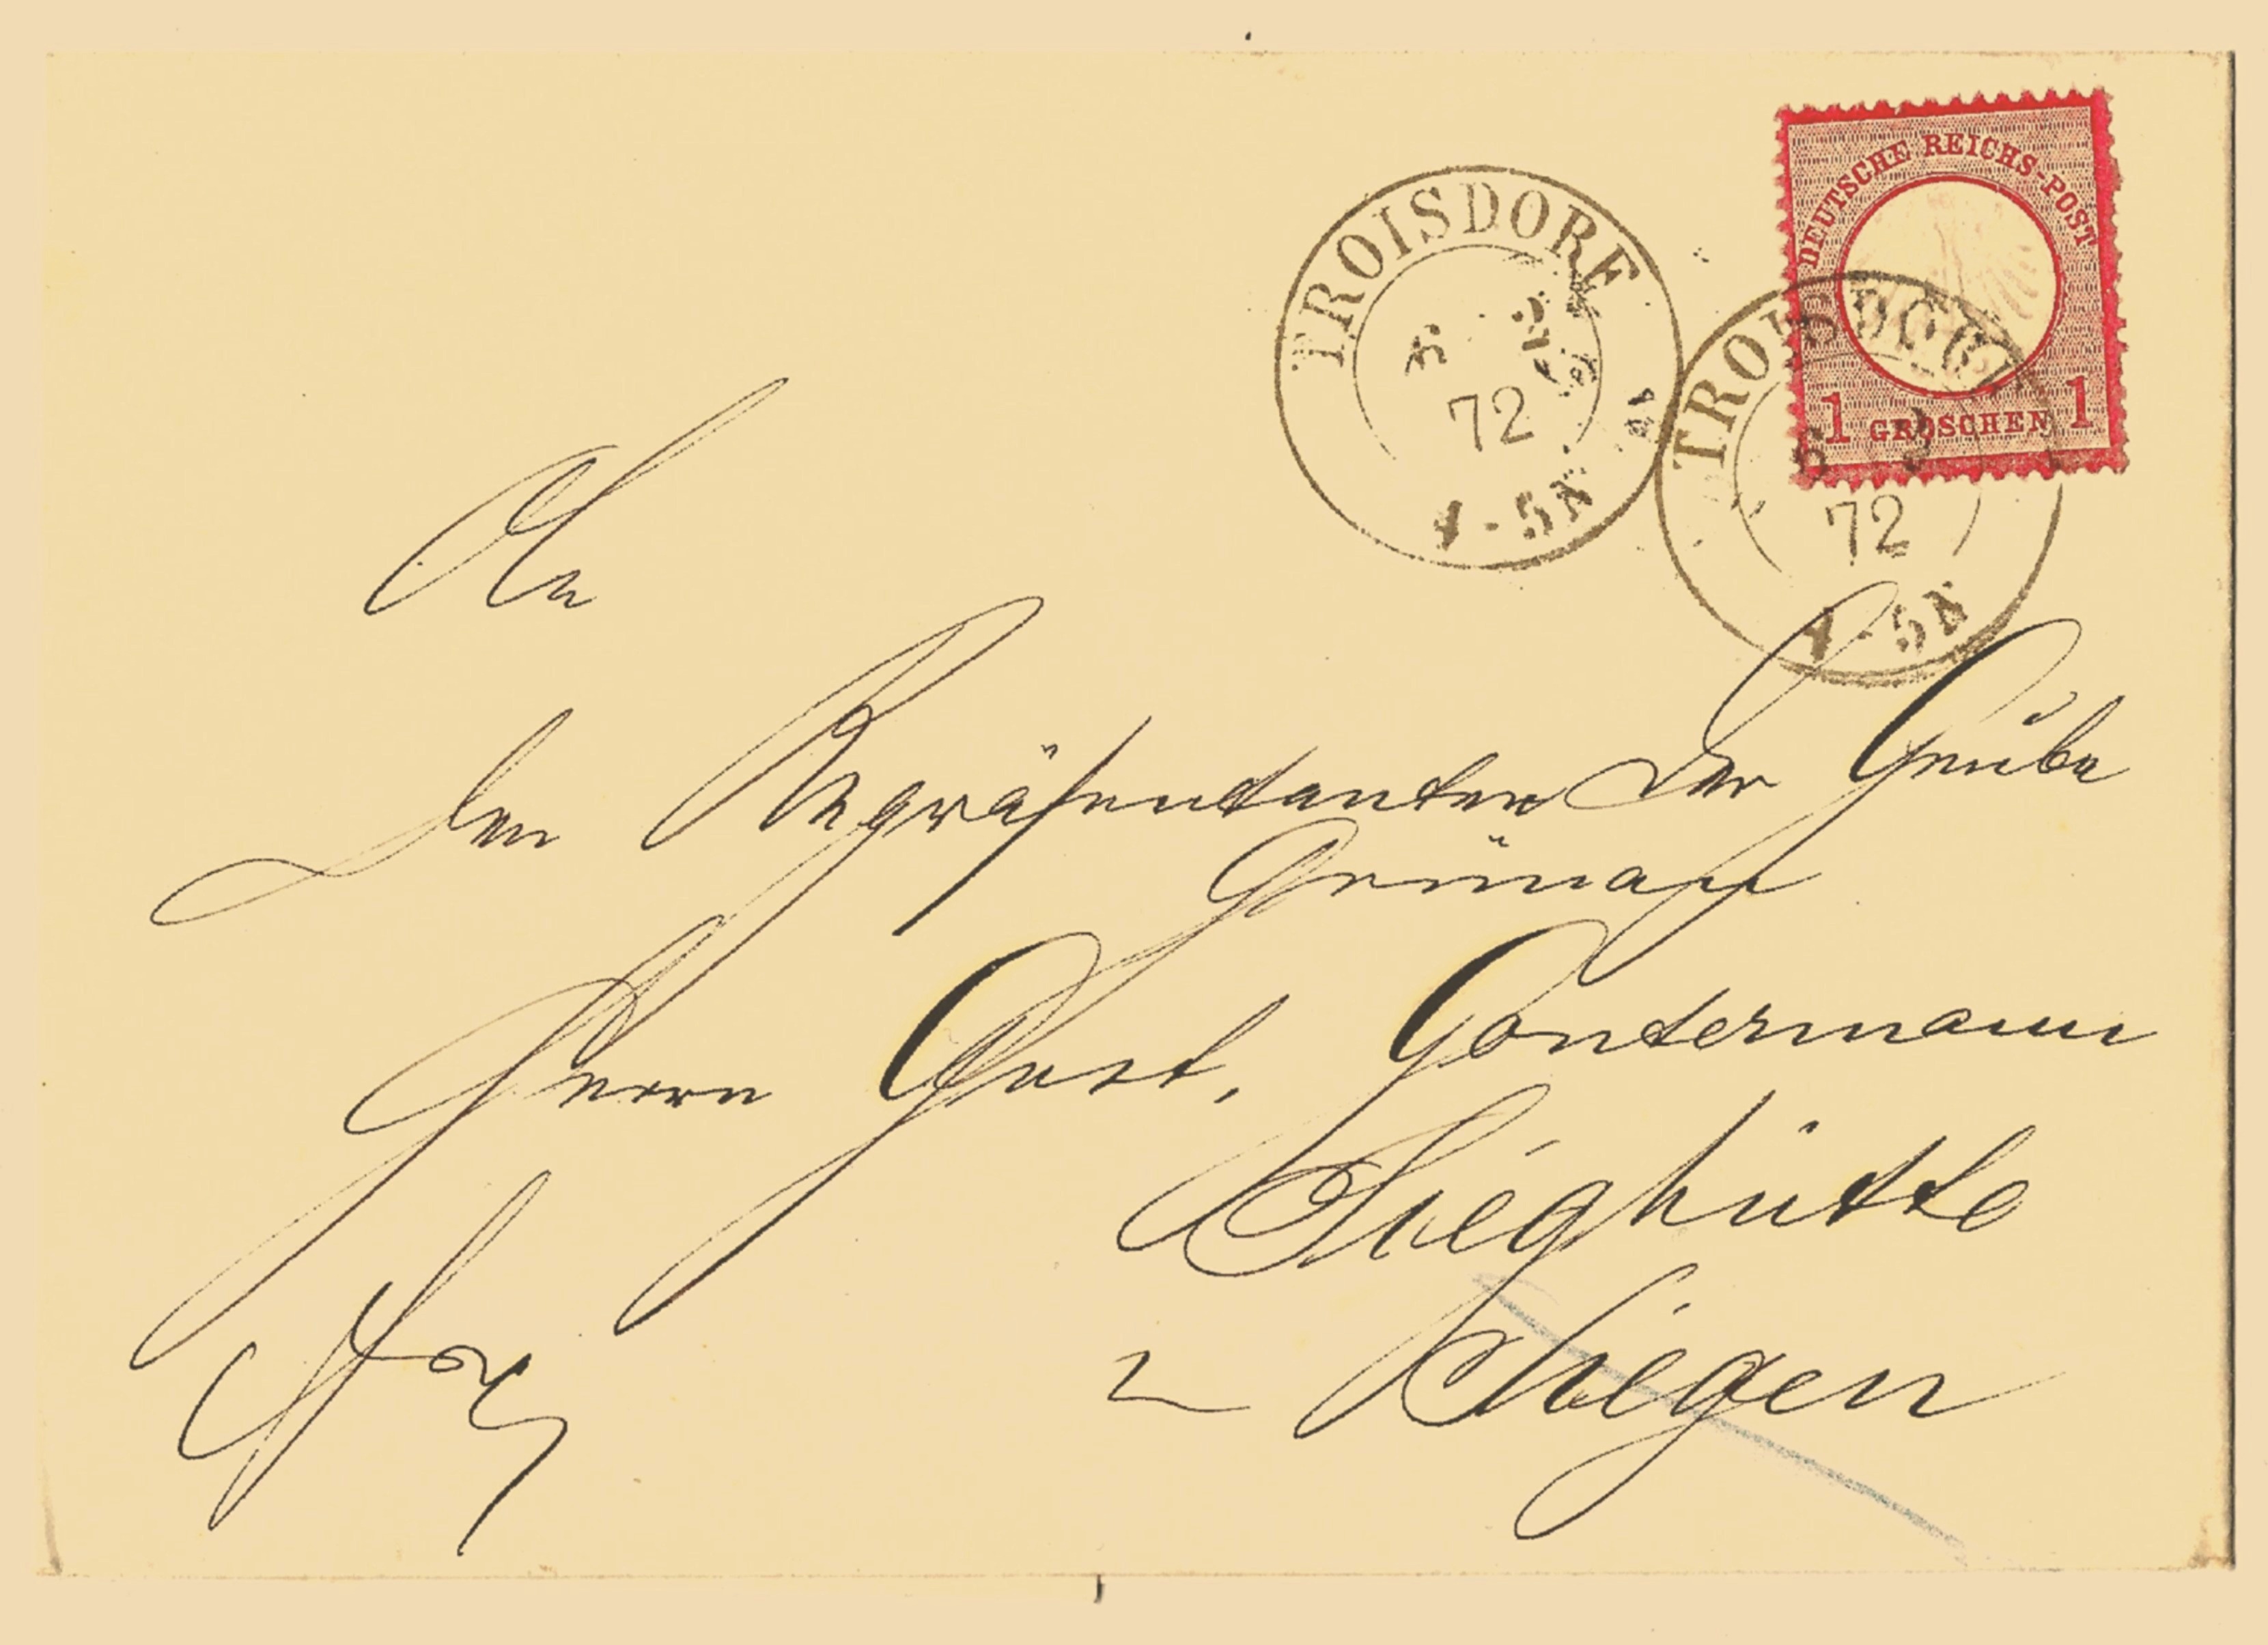 DEUTSCHE REICHS-POST
1 GROSCHEN 1
TROISDORF
72
TROISDORF
6 3
72
An
den Repräsentanten der Grube
Grünau
Herrn Gust. Gontermann
Sieghütte
Siegen